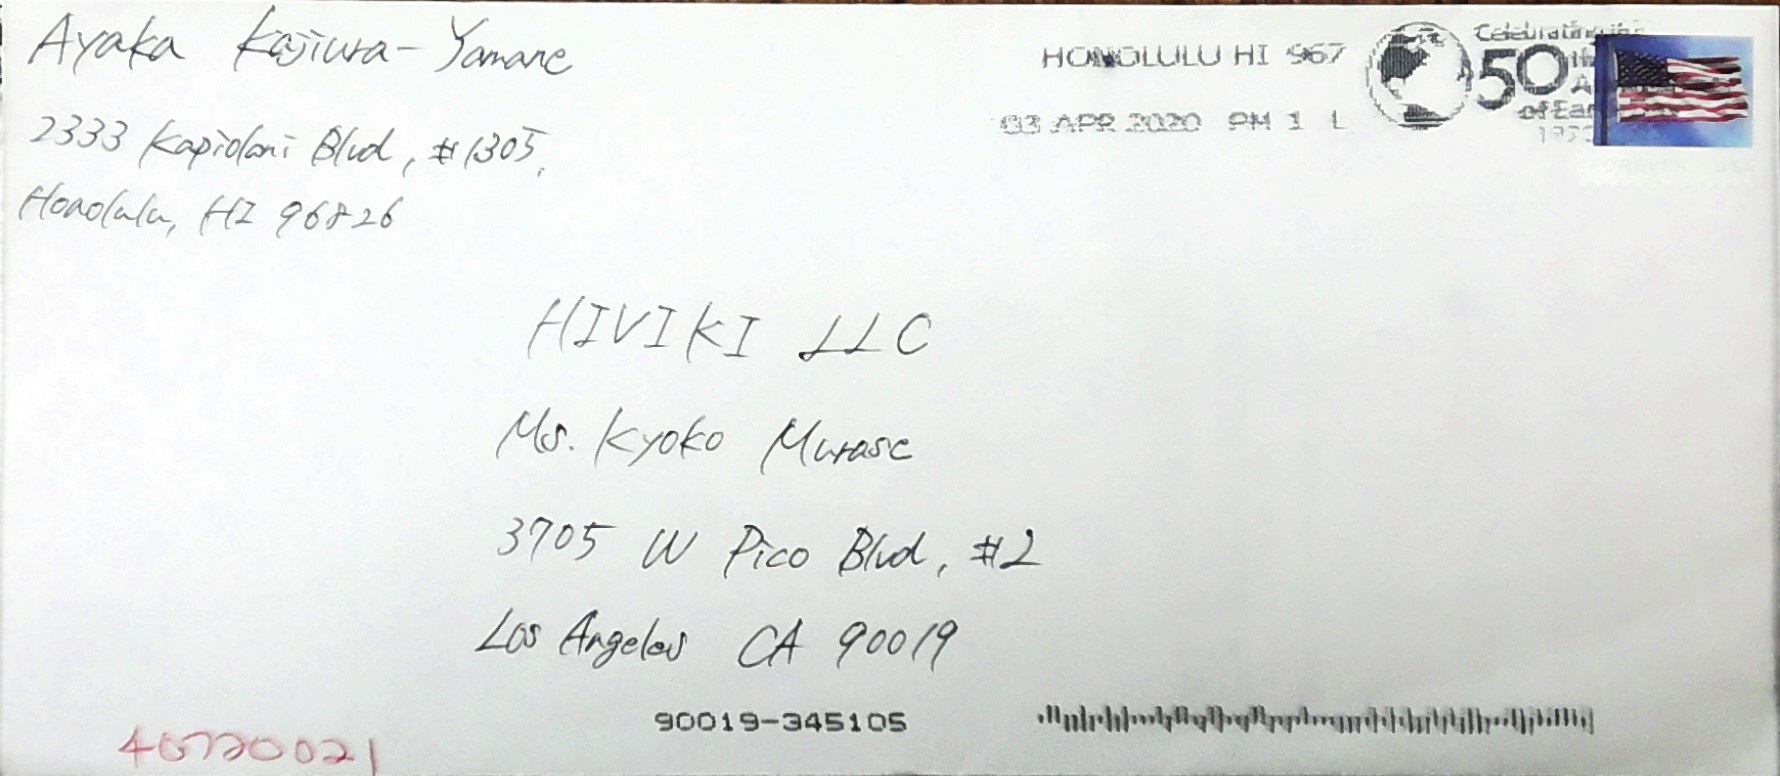 Ayaka Kajiwra-Yamane
2333 Kapiolani Blvd, #1305,
Honolulu, HI 96826
HONOLULU HI 967
03 APR 2020 PM 1 L
Celebrating
50th
of Ear
HIVIKI LLC
Ms. Kyoko Murase
3705 W Pico Blvd, #2
Los Angeles CA 90019
90019-345105
40720021